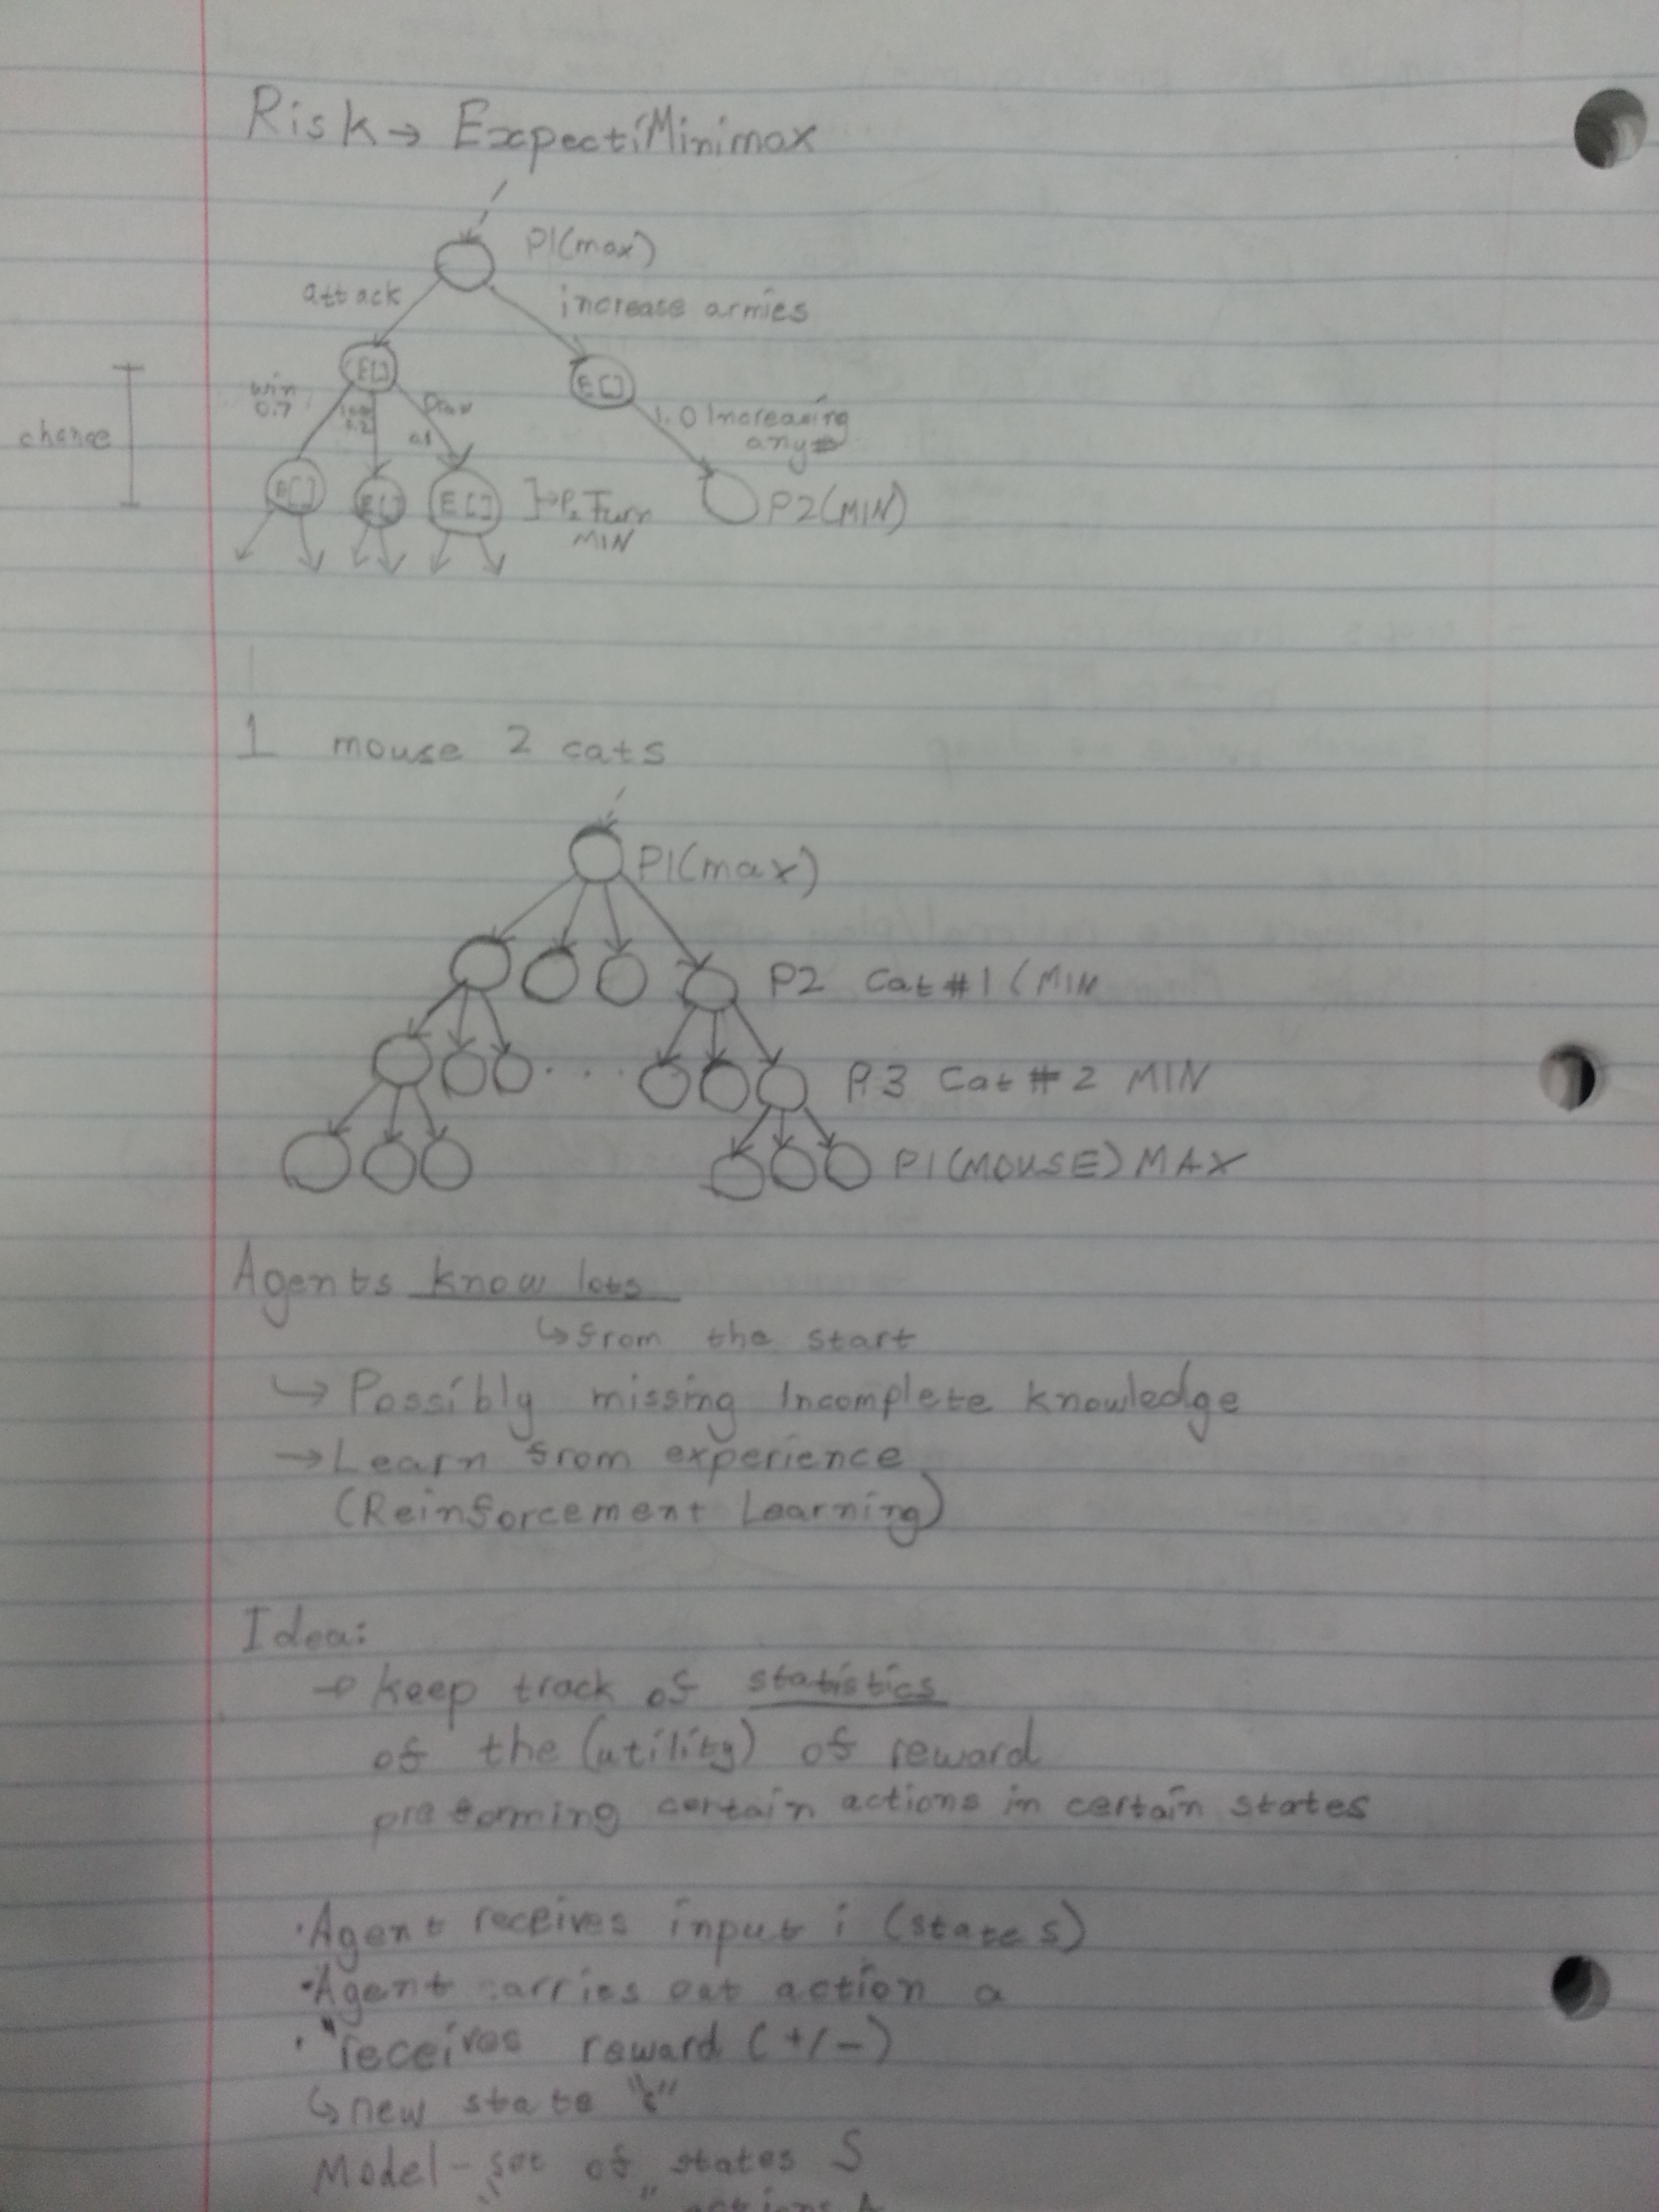 Risk → ExpectiMinimax
P1(max)
attack
increase armies
E[]
E[]
win
0.7
0.2
Draw
0.1
1.0 Increasing
any #
chance
E[]
E[]
E[]
P2 Turn
MIN
P2(MIN)
1 mouse 2 cats
P1(max)
P2 Cat #1 (MIN
...
P.3 Cat #2 MIN
P1(MOUSE) MAX
Agents know lots
↳ from the start
↳ Possibly missing Incomplete knowledge
→ Learn from experience
(Reinforcement Learning)
Idea:
→ keep track of statistics
of the (utility) of reward
preforming certain actions in certain states
· Agent receives input i (state s)
· Agent carries out action a
· " receives reward (+/-)
↳ new state
Model - set of states S
" " actions A